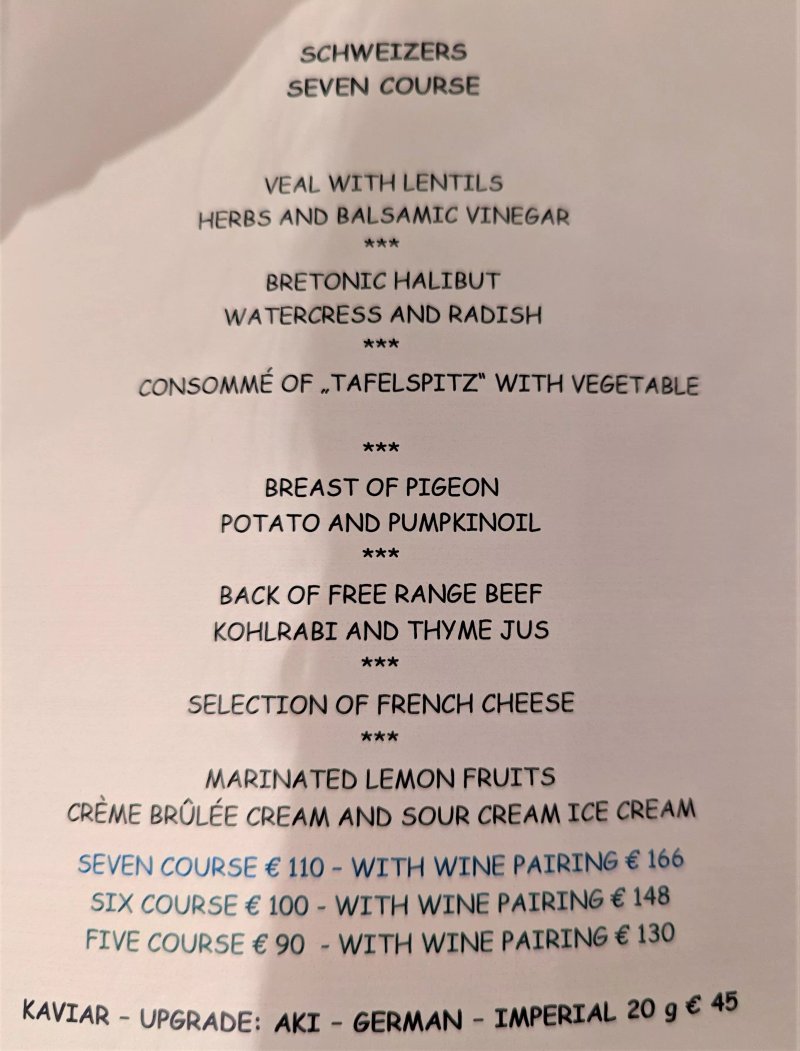 SCHWEIZERS
SEVEN COURSE
VEAL WITH LENTILS
HERBS AND BALSAMIC VINEGAR
***
BRETONIC HALIBUT
WATERCRESS AND RADISH
***
CONSOMMÉ OF „TAFELSPITZ“ WITH VEGETABLE
***
BREAST OF PIGEON
POTATO AND PUMPKINOIL
***
BACK OF FREE RANGE BEEF
KOHLRABI AND THYME JUS
***
SELECTION OF FRENCH CHEESE
***
MARINATED LEMON FRUITS
CRÈME BRÛLÉE CREAM AND SOUR CREAM ICE CREAM
SEVEN COURSE € 110 - WITH WINE PAIRING € 166
SIX COURSE € 100 - WITH WINE PAIRING € 148
FIVE COURSE € 90 - WITH WINE PAIRING € 130
KAVIAR – UPGRADE: AKI – GERMAN – IMPERIAL 20 g € 45